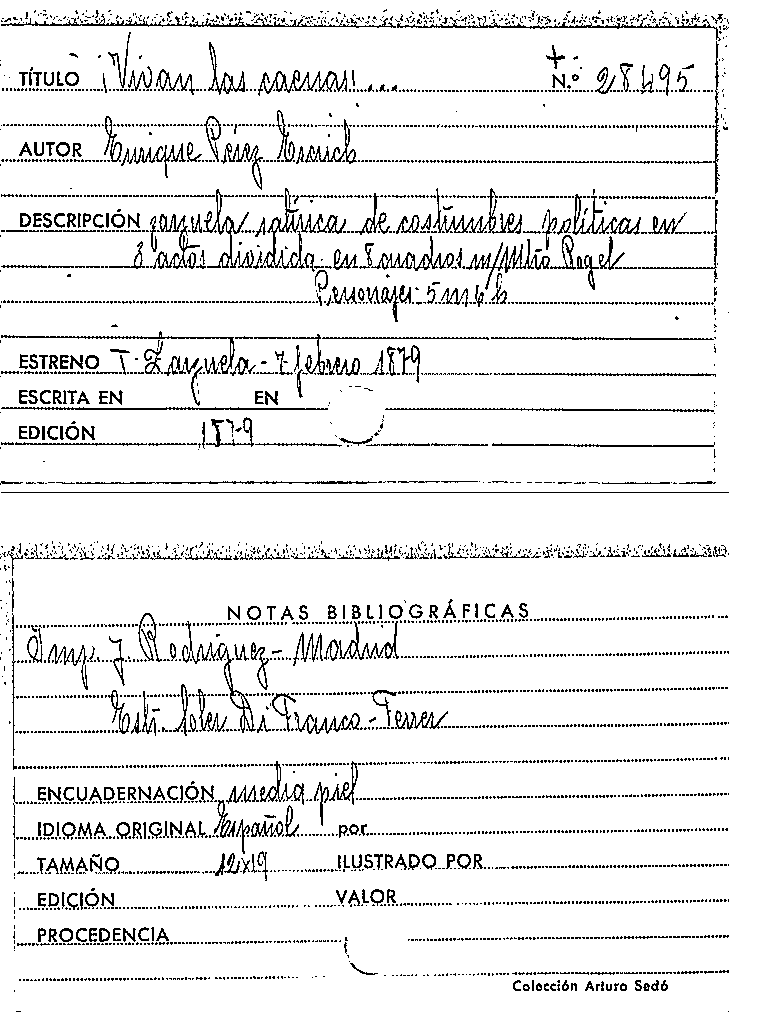 TÍTULO ¡Vivan las caenas!... N.º 28495
AUTOR Enrique Pérez Escrich
DESCRIPCIÓN zarzuela satírica de costumbres políticas en
3 actos dividida en 8 cuadros m/Mtro Rogel
Personajes - 5 m 6 h
ESTRENO T. Zarzuela - 7 febrero 1879
ESCRITA EN EN
EDICIÓN 1879
NOTAS BIBLIOGRÁFICAS
Imp. J Rodríguez - Madrid
Estr. Soler Di Franco - Ferrer
ENCUADERNACIÓN media piel
IDIOMA ORIGINAL Español por
TAMAÑO 12x19 ILUSTRADO POR
EDICIÓN VALOR
PROCEDENCIA
Colección Arturo Sedó